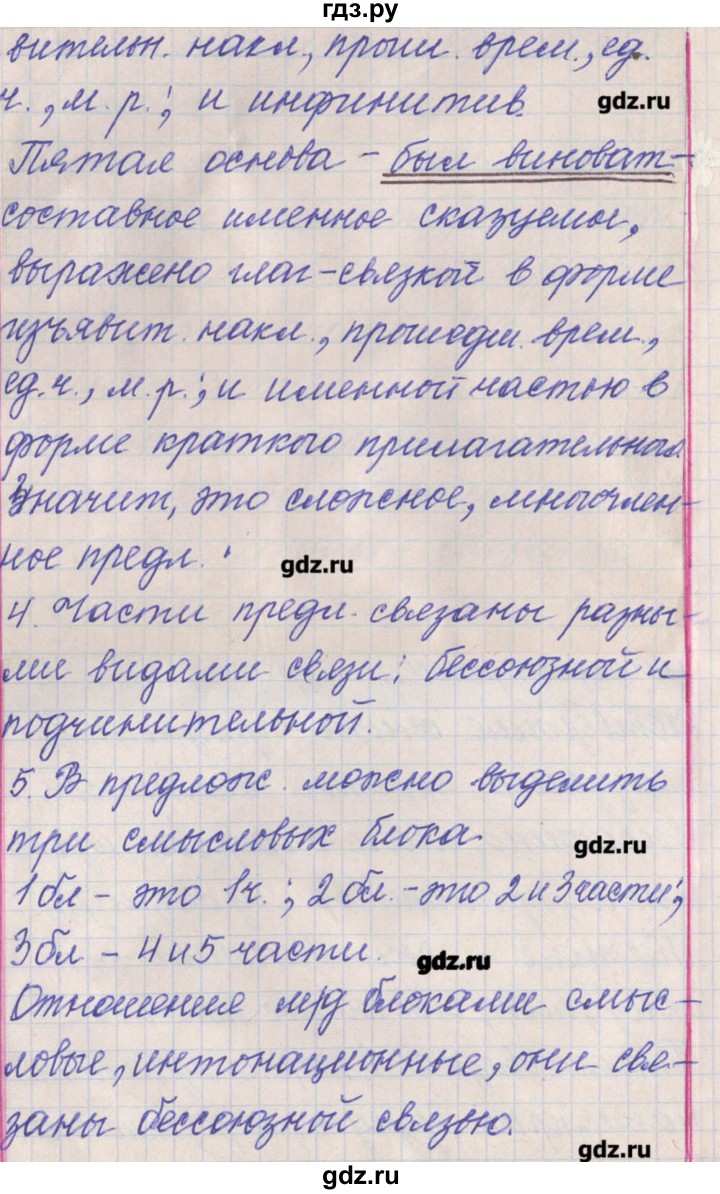 гдз.ру
вительн. накл., прош. врем., ед.
ч., м.р.; и инфинитив.
gdz.ru
Пятая основа - был виноват -
составное именное сказуемы,
выражено глаг-связкой в форме
изъявит. накл., прошедш. врем.,
ед.ч., м.р.; и именной частью в
форме краткого прилагательная
Значит, это сложное, многочлен-
ное предл.
gdz.ru
4. Части предл. связаны разны-
ми видами связи: бессоюзной и
подчинительной.
5. В предлож. можно выделить
три смысловых блока.
gdz.ru
1 бл - это 1ч.; 2 бл. - это 2 и 3 части;
3 бл - 4 и 5 части.
gdz.ru
Отношения м/д блоками смыс-
ловые, интонационные, они свя-
заны бессоюзной связью.
gdz.ru
gdz.ru